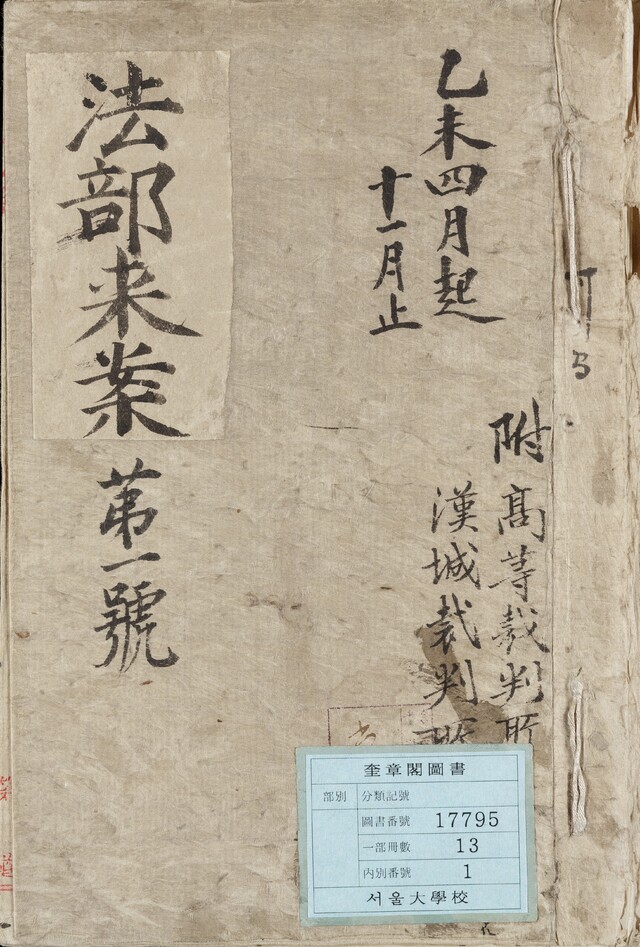 乙未四月起
十一月止
附 高等裁判所
漢城裁判所
法部来案 苐一號
奎章閣圖書
部別 分類記號
圖書番號 17795
一部冊數 13
內別番號 1
서울大學校